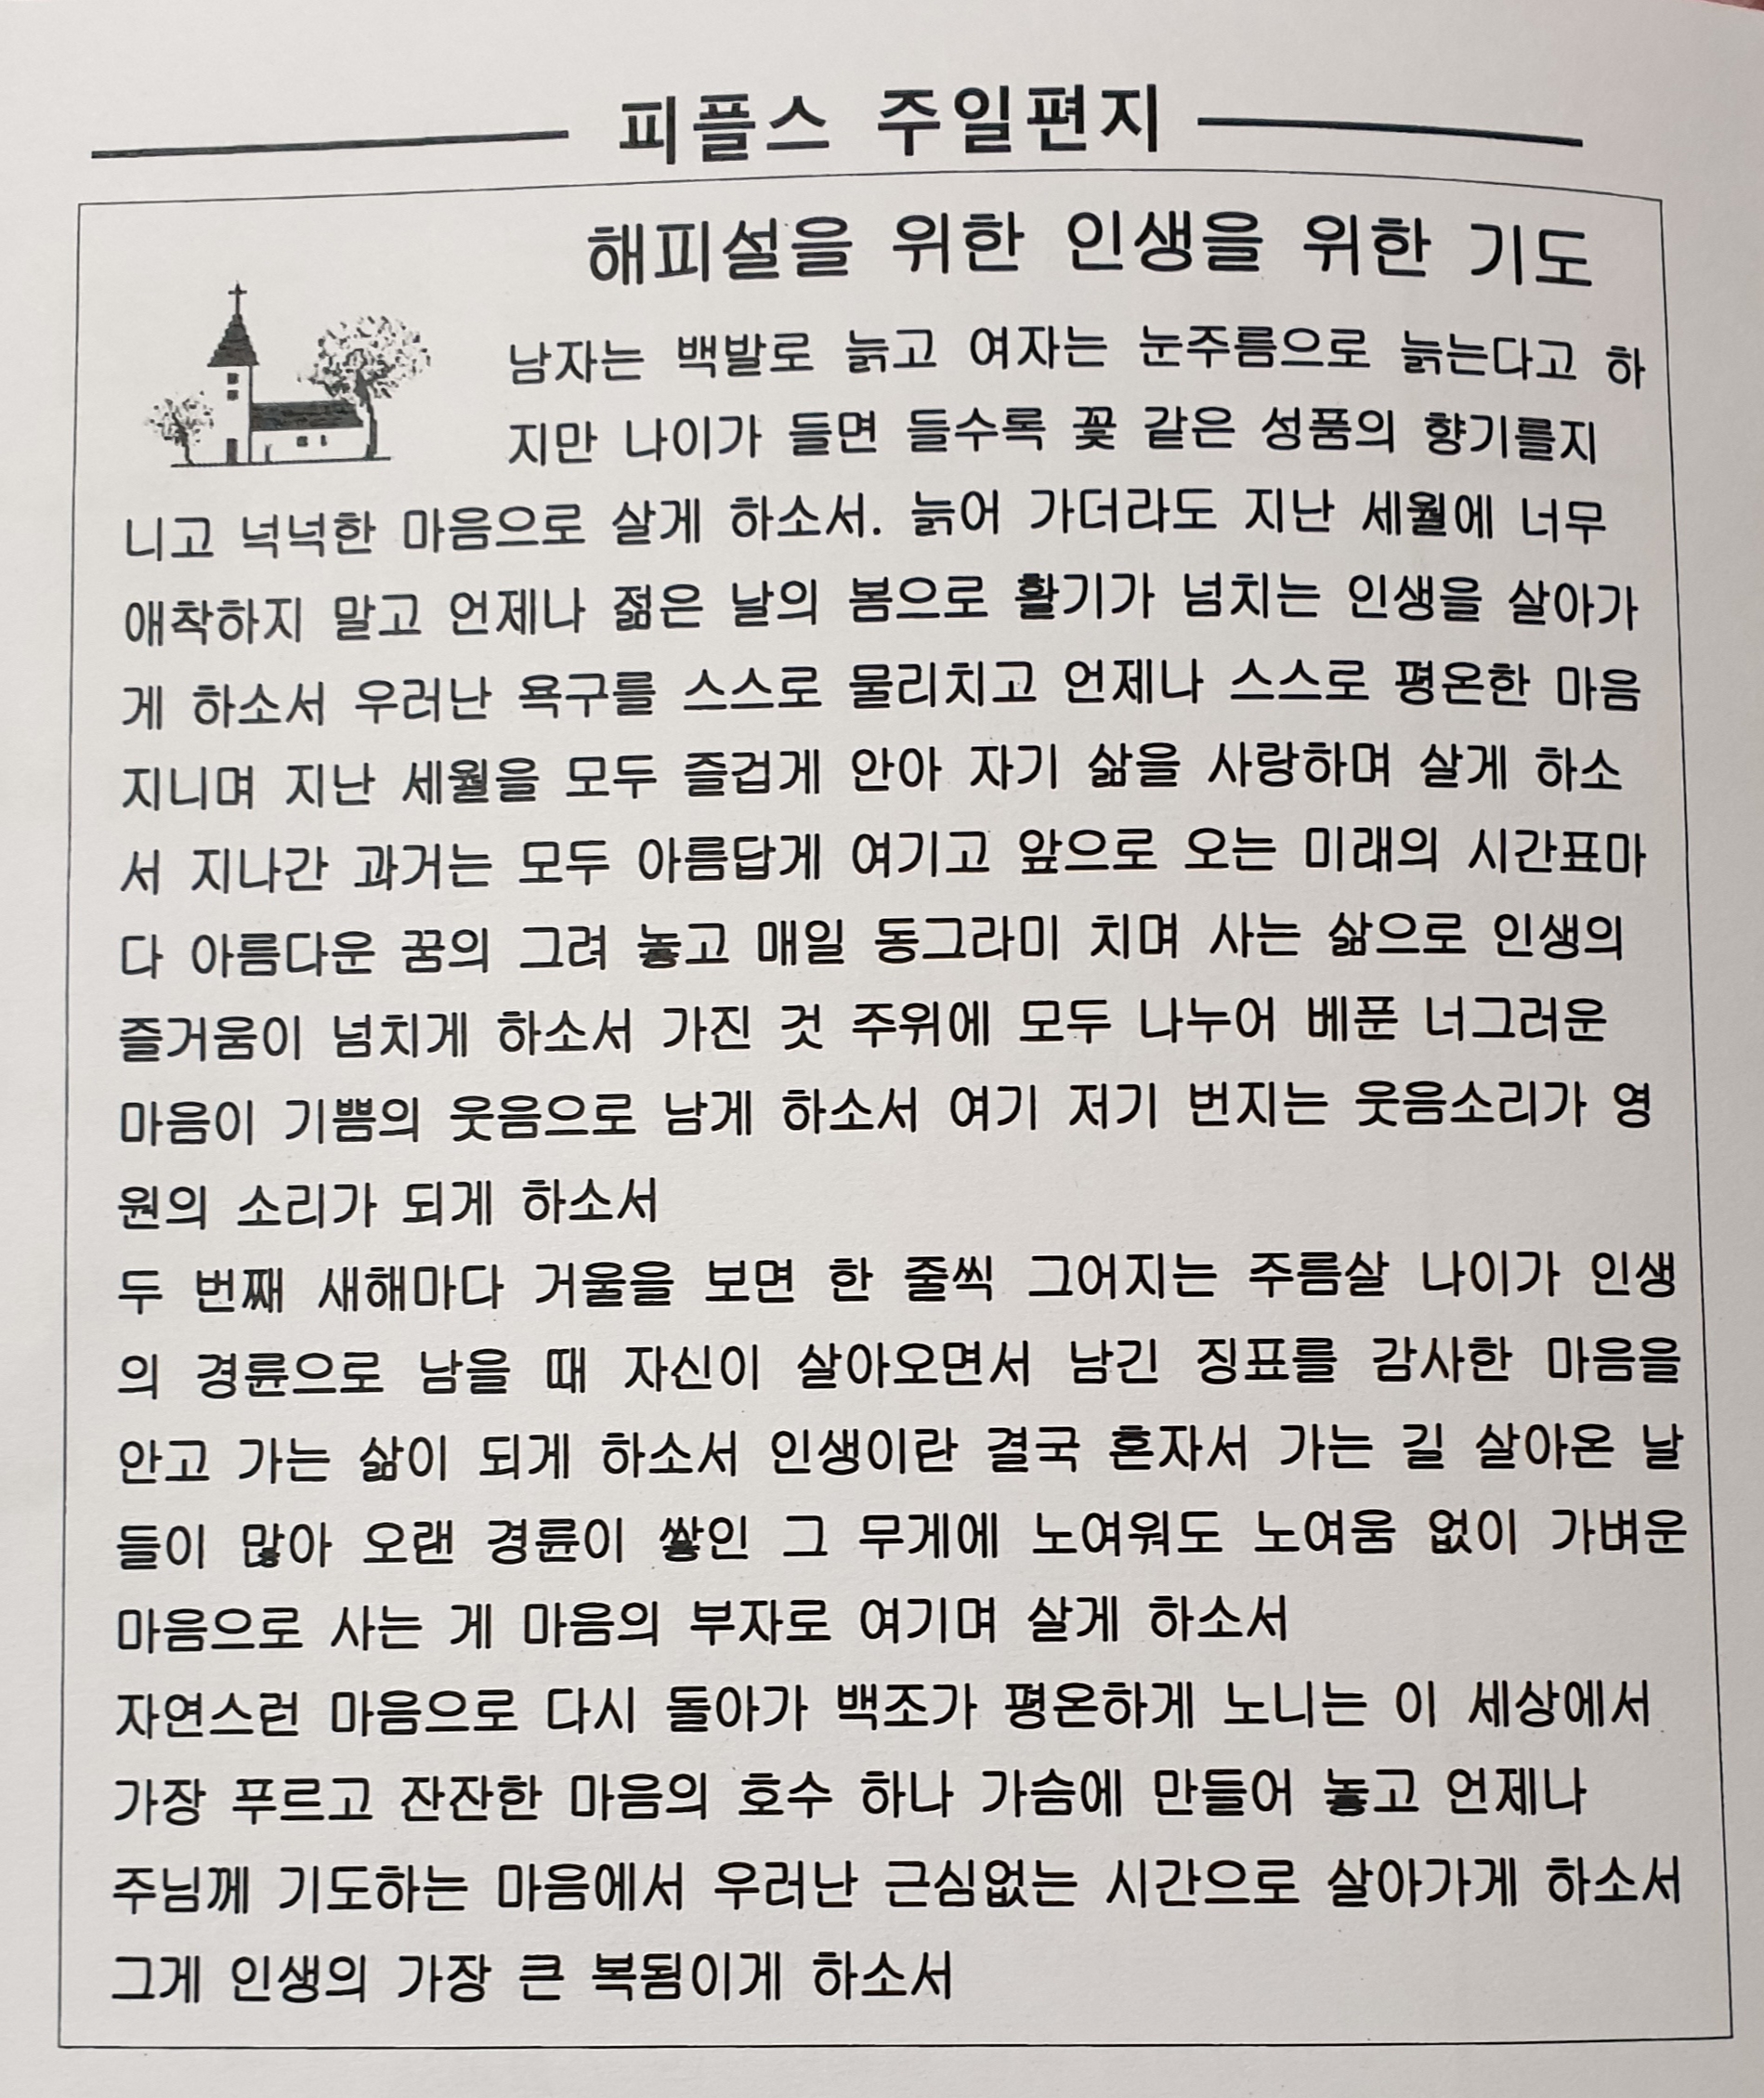 피플스 주일편지
해피설을 위한 인생을 위한 기도
남자는 백발로 늙고 여자는 눈주름으로 늙는다고 하
지만 나이가 들면 들수록 꽃 같은 성품의 향기를지
니고 넉넉한 마음으로 살게 하소서. 늙어 가더라도 지난 세월에 너무
애착하지 말고 언제나 젊은 날의 봄으로 활기가 넘치는 인생을 살아가
게 하소서 우러난 욕구를 스스로 물리치고 언제나 스스로 평온한 마음
지니며 지난 세월을 모두 즐겁게 안아 자기 삶을 사랑하며 살게 하소
서 지나간 과거는 모두 아름답게 여기고 앞으로 오는 미래의 시간표마
다 아름다운 꿈의 그려 놓고 매일 동그라미 치며 사는 삶으로 인생의
즐거움이 넘치게 하소서 가진 것 주위에 모두 나누어 베푼 너그러운
마음이 기쁨의 웃음으로 남게 하소서 여기 저기 번지는 웃음소리가 영
원의 소리가 되게 하소서
두 번째 새해마다 거울을 보면 한 줄씩 그어지는 주름살 나이가 인생
의 경륜으로 남을 때 자신이 살아오면서 남긴 징표를 감사한 마음을
안고 가는 삶이 되게 하소서 인생이란 결국 혼자서 가는 길 살아온 날
들이 많아 오랜 경륜이 쌓인 그 무게에 노여워도 노여움 없이 가벼운
마음으로 사는 게 마음의 부자로 여기며 살게 하소서
자연스런 마음으로 다시 돌아가 백조가 평온하게 노니는 이 세상에서
가장 푸르고 잔잔한 마음의 호수 하나 가슴에 만들어 놓고 언제나
주님께 기도하는 마음에서 우러난 근심없는 시간으로 살아가게 하소서
그게 인생의 가장 큰 복됨이게 하소서